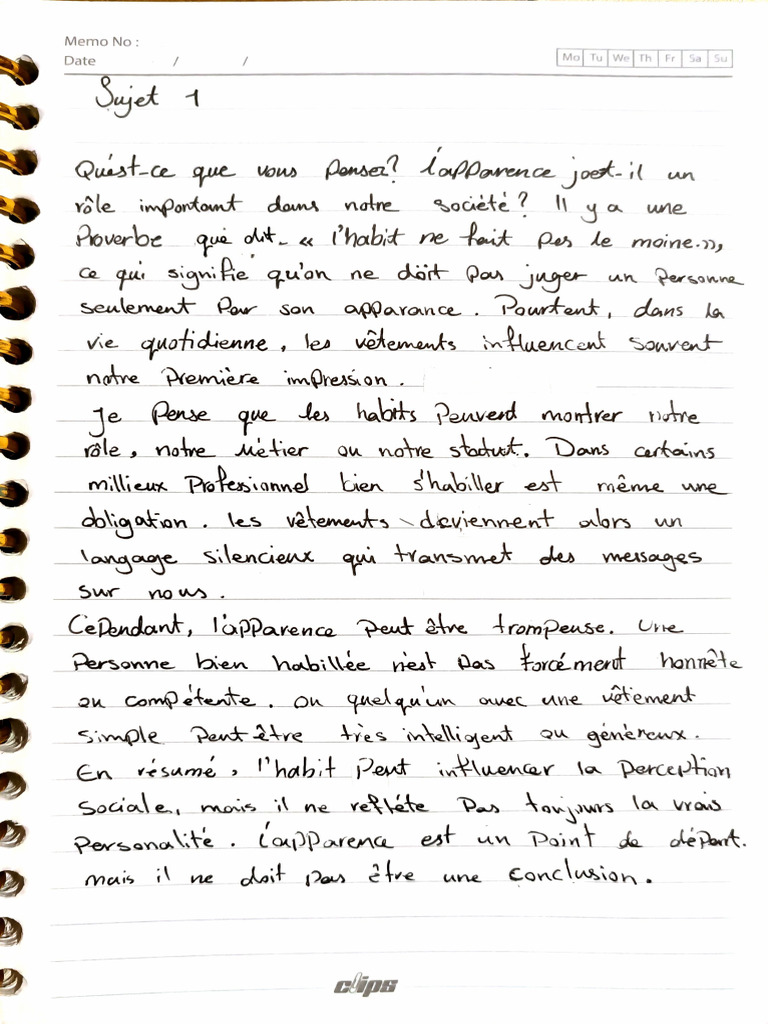 Memo No :
Date / /
Mo Tu We Th Fr Sa Su
Sujet 1
Qu'est-ce que vous pensez? L'apparence joet-il un
rôle important dans notre société? Il y a une
Proverbe que dit « l'habit ne fait pas le moine.»,
ce qui signifie qu'on ne doît pas juger un personne
seulement par son apparance. Pourtent, dans la
vie quotidienne, les vêtements influencent souvent
notre Première impression.
Je Pense que les habits peuvent montrer notre
rôle, notre métier ou notre statut. Dans certains
millieux Professionnel bien s'habiller est même une
obligation. les vêtements deviennent alors un
langage silencieux qui transmet des messages
sur nous.
Cependant, l'apparence peut être trompeuse. Une
Personne bien habillée n'est pas forcément honnête
ou compétente. ou quelqu'un avec une vêtement
simple peut être très intelligent ou généreux.
En résumé, l'habit peut influencer la perception
sociale, mais il ne refléte pas toujours la vrais
personalité. L'apparence est un point de départ.
mais il ne doit pas être une conclusion.
clips